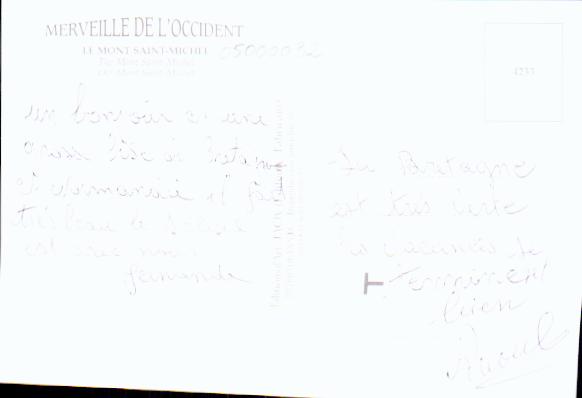 MERVEILLE DE L'OCCIDENT
LE MONT SAINT-MICHEL
The Mont Saint-Michel
Der Mont Saint-Michel
05000032
4233
un bonsoir et une
gross bise de Bretagne
et Normandie il fait
très beau le soleil
est avec nous
fernande
La Bretagne
est très verte
les vacances se
terminent
bien
Raoul